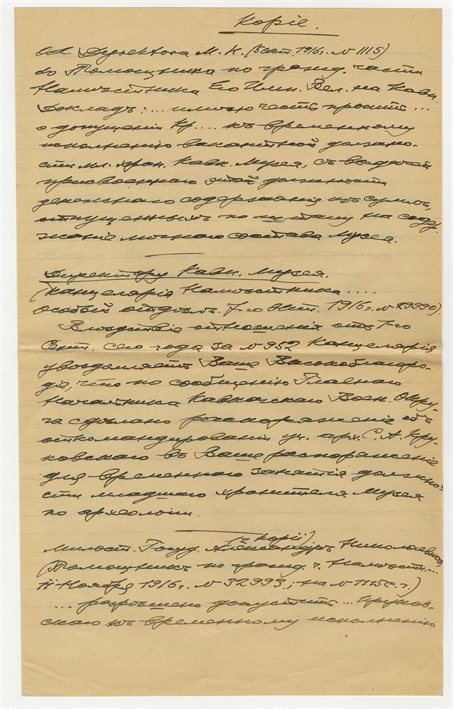 Копіе.
Отъ Директора М. К. (5 сент. 1916 г. № 1115)
до Помощника по гражд. части
Намѣстника Его Имп. Вел. на Кавк.
Докладъ: ... имѣю честь просить ...
о допущеніи Кр.... къ временному
исполненію вакантной должно-
сти мл. хран. Кавк. Музея, съ выдачей
присвоеннаго этой должности
денежнаго содержанія изъ суммъ,
отпущенныхъ по штату на соде-
жаніе личнаго состава Музея.
Директору Кавк. Музея.
(Канцелярія Намѣстника ....
особый отдѣлъ. 7-го Окт. 1916 г. № 29990).
Вслѣдствіе отношенія отъ 7-го
Сент. сего года за № 952 Канцелярія
увѣдомляетъ Ваше Высокоблагоро-
діе, что по сообщенію Главнаго
Начальника Кавказскаго Воен. Окру-
га сдѣлано распоряженіе объ
откомандированіи С. А. Кру-
ковскаго въ Ваше распоряженіе
для временнаго занятія должно-
сти младшаго хранителя Музея
по археологіи.
(Копіи)
Милост. Госуд. Александръ Николаевичъ,
(Помощникъ по гражд. ч. Намѣстн....
11 Ноября 1916 г. № 32993; на № 1115 с. г.)
.... разрѣшено допустить ... Круков-
скаго къ временному исполненію